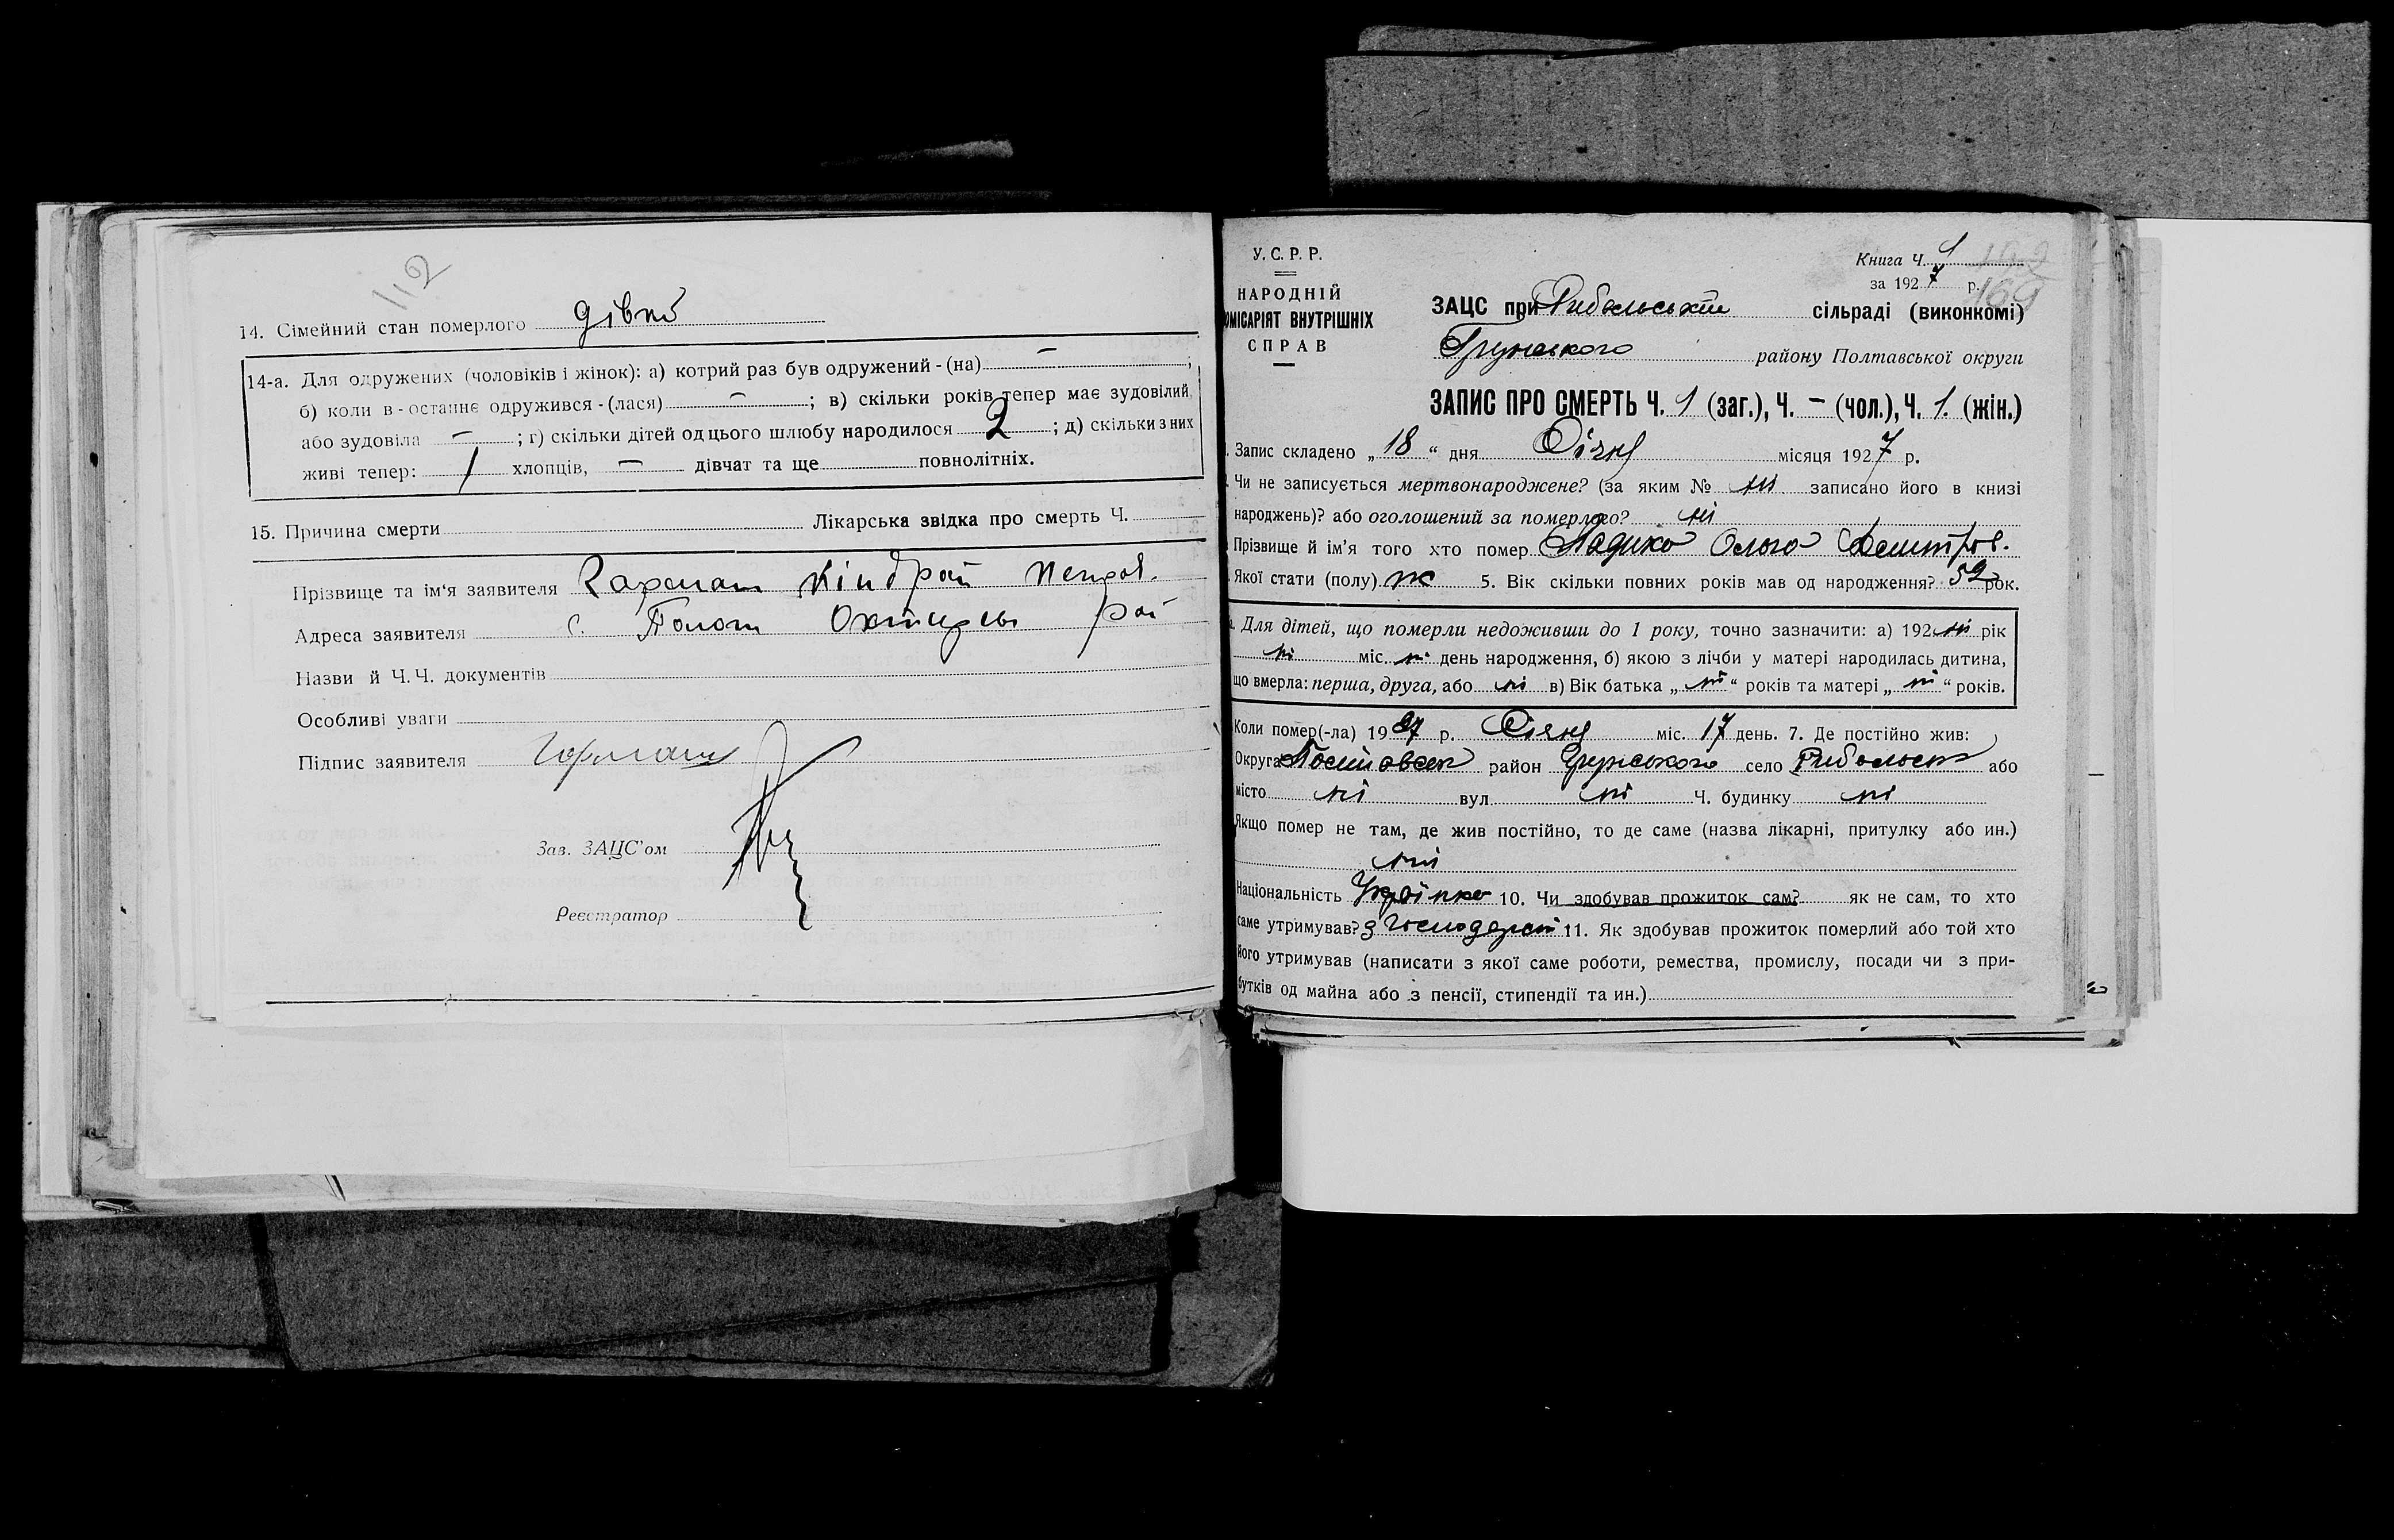 112
14. Сімейний стан померлого дівка
14-а. Для одружених (чоловіків і жінок): а) котрий раз був одружений - (на) — ;
б) коли в - останнє одружився - (лася) — ; в) скільки років тепер має зудовілий,
або зудовіла — ; г) скільки дітей од цього шлюбу народилося 2 ; д) скільки з них
живі тепер: 1 хлопців, — дівчат та ще повнолітніх.
15. Причина смерти Лікарська звідка про смерть Ч.
Прізвище та ім'я заявителя Кіндрат
Адреса заявителя с. рай
Назви й Ч.Ч. документів
Особливі уваги
Підпис заявителя
Зав. ЗАЦС'ом
Реєстратор
У.С.Р.Р.
НАРОДНІЙ
ОМІСАРІЯТ ВНУТРІШНІХ
СПРАВ
Книга Ч. 1
за 1927 р.
169
ЗАЦС при Рибальській сільраді (виконкомі)
Грунського району Полтавської округи
ЗАПИС ПРО СМЕРТЬ Ч. 1 (заг.), Ч. — (чол.), Ч. 1. (жін.)
Запис складено „18“ дня Січня місяця 1927 р.
Чи не записується мертвонароджене? (за яким № ні записано його в книзі
народжень)? або оголошений за померлого? ні
Прізвище й ім'я того хто помер Ольга Дмитров.
Якої стати (полу) ж 5. Вік скільки повних років мав од народження? 52 рок.
Для дітей, що померли недоживши до 1 року, точно зазначити: а) 192 ні рік
ні міс. ні день народження, б) якою з лічби у матері народилась дитина,
що вмерла: перша, друга, або ні в) Вік батька „ні“ років та матері „ні“ років.
Коли помер(-ла) 1927 р. Січня міс. 17 день. 7. Де постійно жив:
Округа район Грунського село або
місто ні вул ні Ч. будинку ні
Якщо помер не там, де жив постійно, то де саме (назва лікарні, притулку або ин.)
ні
Національність Українка 10. Чи здобував прожиток сам? як не сам, то хто
саме утримував? з господарст 11. Як здобував прожиток померлий або той хто
його утримував (написати з якої саме роботи, ремества, промислу, посади чи з при-
бутків од майна або з пенсії, стипендії та ин.)